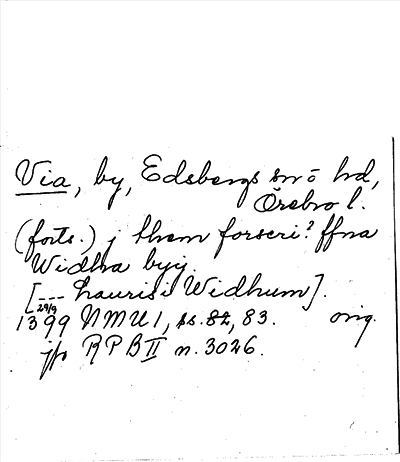 Via, by, Edsbergs sn o hd,
Örebro l.
(forts.) j them forscri? ffna
Widha byy.
[--- Laurisi Widhum].
1399 29/9 NMU 1, ss. 82, 83. orig.
jfr RPB II n. 3026.